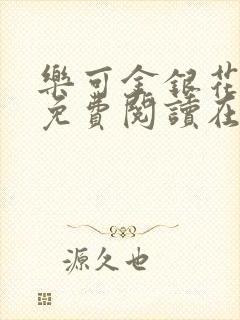 樂可金銀花
免費閱讀在
源久也